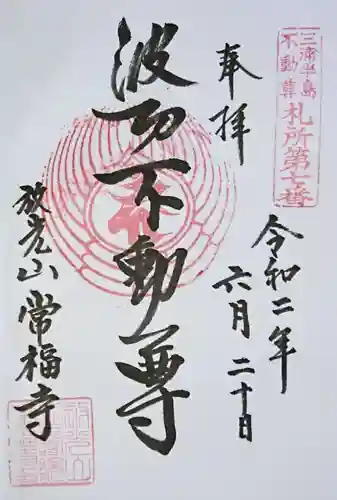 三浦半島
不動尊
札所第七番
奉拝
令和二年
六月二十日
波切不動尊
放光山 常福寺